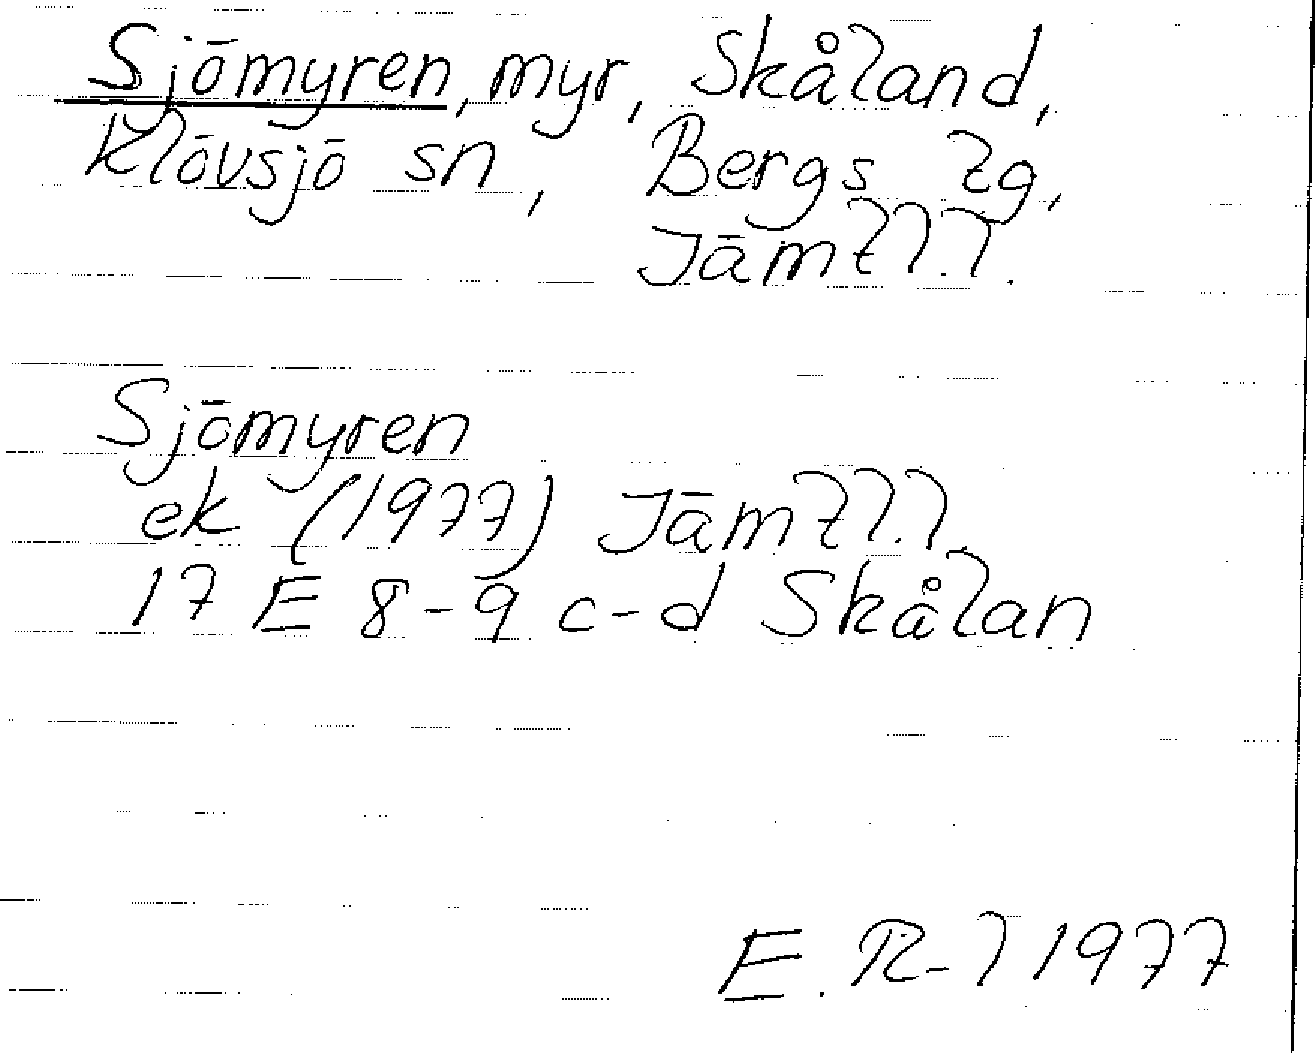 Sjömyren, myr, Skåland,
Klövsjö sn, Bergs lg,
Jämtl.l.
Sjömyren
ek (1977) Jämtl.l.
17 E 8-9 c-d Skålan
E. R-l 1977